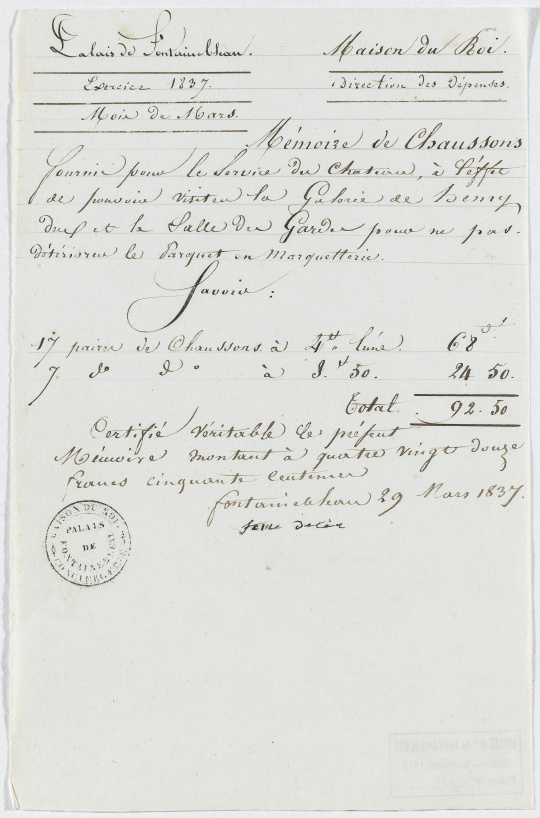 Palais de Fontainebleau.
Maison du Roi.
Exercice 1837.
Direction des Dépenses.
Mois de Mars.
Mémoire de Chaussons
fournis pour le Service du Chateau, à l'éffet
de pouvoir visiter la Galerie de henry
deux et la Salle des Gardes pour ne pas
détériorer le Parquet en Marquetterie.
Savoir :
17 paires de Chaussons à 4 lune. 68
7. do do à 3. 50. 24 50.
Total. 92. 50
Certifié véritable le présent
Mémoire montant à quatre vingt douze
francs cinquante centimes
fontainebleau 29 Mars 1837.
MAISON DU ROI
PALAIS
DE
FONTAINEBLEAU
CONCIERGERIE